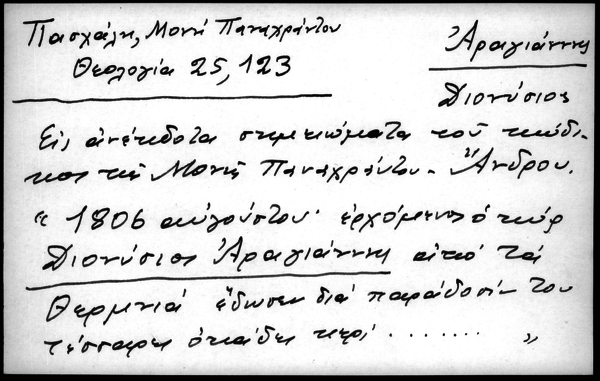 Πασχάλη, Μονή Παναχράντου
Θεολογία 25, 123
Ἀραγιάννης
Διονύσιος
Εἰς ἀνέκδοτα σημειώματα τοῦ κώδι-
κος τῆς Μονῆς Παναχράντου - Ἄνδρου.
" 1806 αὐγούστου· ἐρχόμενος ὁ κύρ
Διονύσιος Ἀραγιάννης ἀπό τά
Θερμνιά ἔδωσεν διά παράδοσίν του
τέσσαρες ὀκάδες κερί . . . . . . . . "